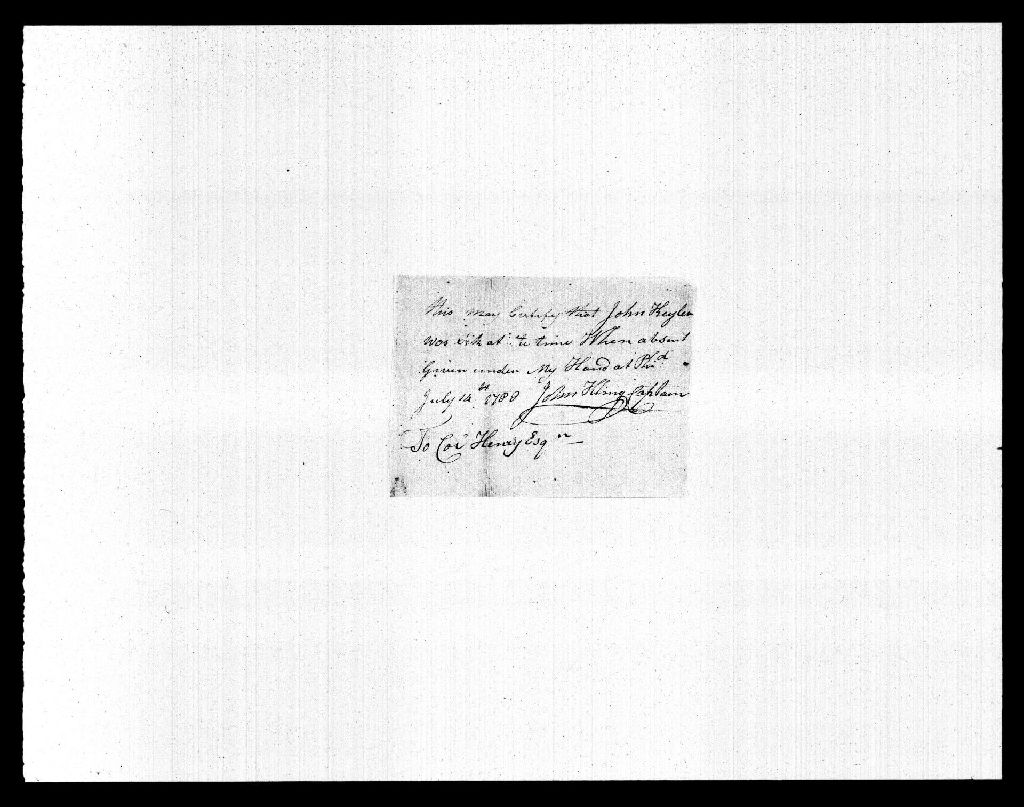 this may Certify that John Keyler
was sik at te time When absent
Given under My Hand at Phid
July 14th 1780 John Kling Captain
To Col Henry Esqr